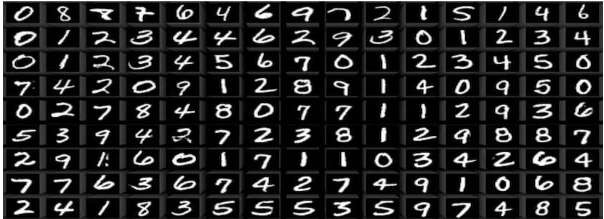 0 8 8 7 6 4 6 9 7 2 1 5 1 4 6
0 1 2 3 4 4 6 2 9 3 0 1 2 3 4
0 1 2 3 4 5 6 7 0 1 2 3 4 5 0
7 4 2 0 9 1 2 8 9 1 4 0 9 5 0
0 2 7 8 4 8 0 7 7 1 1 2 9 3 6
5 3 9 4 2 7 2 3 8 1 2 9 8 8 7
2 9 1 6 0 1 7 1 1 0 3 4 2 6 4
7 7 6 3 6 7 4 2 7 4 9 1 0 6 8
2 4 1 8 3 5 5 5 3 5 9 7 4 8 5